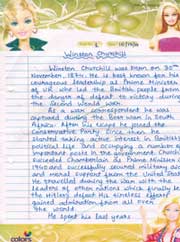 Winston Churchill
Winston Churchill was born on 30th
November, 1874. He is best known for his
courageous leadership as Prime Minister
of UK who led the British people from
the danger of defeat to victory during
the Second World War.
As a war correspondent he was
captured during the Boer War in South
Africa. After his escape he joined the
Conservative Party. Since then he
started taking active interest in British
political life and occupying a number of
important posts in the government. Church
succeeded Chamberlain as Prime Minister i
1940 and successfully secured military aid
and moral support from the United Stat
He travelled during the war with the
leaders of other nations which finally le
the Hitler's defeat. His tireless efforts
gained admiration from all over
the world.
He spent his last years
colors